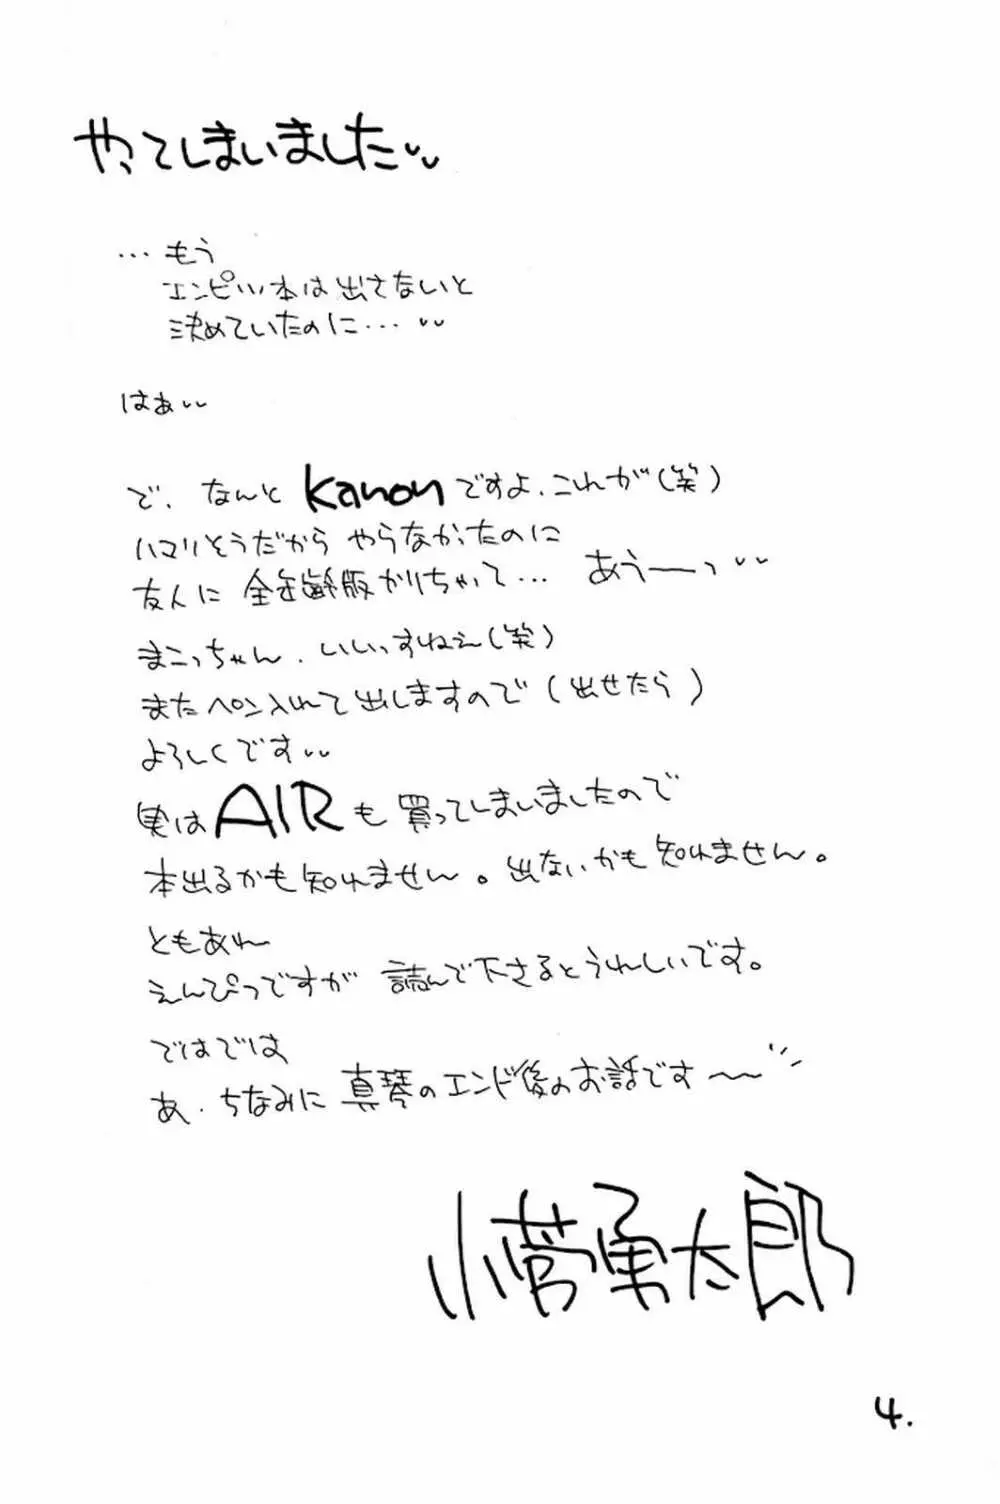 やってしまいました〃
…もう
エンピツ本は出さないと
決めていたのに…〃
はぁ〃
で、なんと Kanonですよ、これが(笑)
ハマりそうだから やらなかったのに
友人に 全年齢版かりちゃって… あうーっ〃
まこっちゃん、いいっすねえ(笑)
またペン入れて出しますので(出せたら)
よろしくです〃
実はAIRも買ってしまいましたので
本出るかも知れません。出ないかも知れません。
ともあれ
えんぴつですが 読んで下さるとうれしいです。
ではでは
あ、ちなみに 真琴のエンド後のお話です〜〜
小菅勇太郎
4.